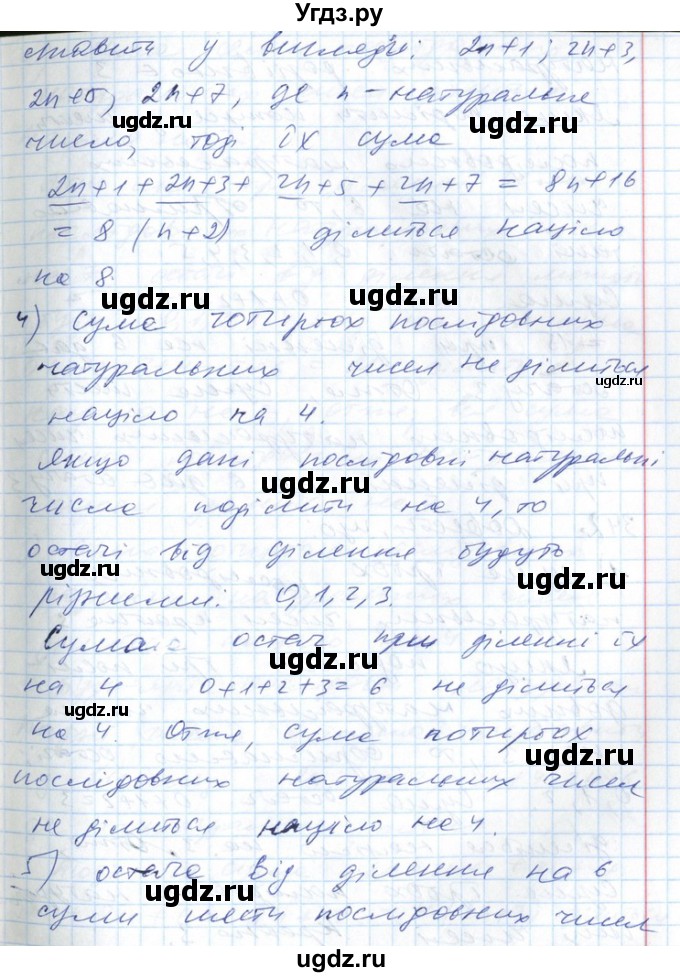 Угдз.ру
ставити у вигляді: 2n+1; 2n+3,
2n+5, 2n+7, де n - натуральне
ugdz.ru
ugdz.ru
число, тоді їх сума
2n+1+2n+3+2n+5+2n+7=8n+16
=8(n+2) ділиться націло
на 8.
ugdz.ru
ugdz.ru
4) Сума чотирьох послідовних
натуральних чисел не ділиться
ugdz.ru
націло на 4.
Якщо дані послідовні натуральні
ugdz.ru
числа поділити на 4, то
остачі від ділення будуть
ugdz.ru
різними: 0,1,2,3.
Сума остач при діленні їх
ugdz.ru
на 4 0+1+2+3=6 не ділиться
ugdz.ru
на 4. Отже, сума чотирьох
ugdz.ru
послідовних натуральних чисел
не ділиться націло на 4.
5) остача від ділення на 6
ugdz.ru
ugdz.ru
суми шести послідовних чисел
ugdz.ru